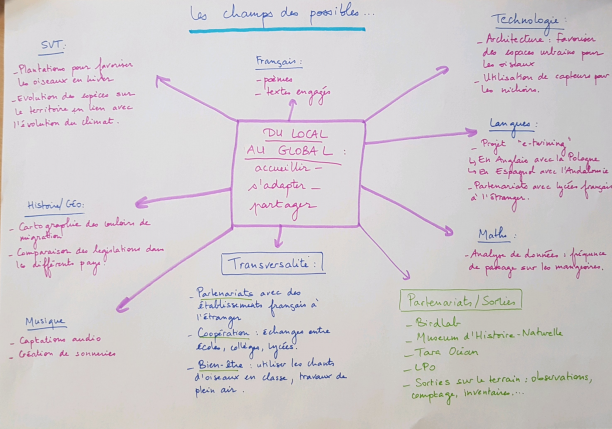 les champs des possibles...
SVT:
- Plantations pour favoriser
les oiseaux en hiver
- Evolution des espèces sur
le territoire en lien avec
l'évolution du climat.
Français:
- poèmes
- textes engagés
Technologie:
- Architecture : Favoriser
des espaces urbains pour
les oiseaux
- Utilisation de capteurs pour
les nichoirs.
DU LOCAL
AU GLOBAL :
accueillir -
s'adapter -
partager
Langues:
- Projet "e-twinning"
↳ En Anglais avec la Pologne
↳ En Espagnol avec l'Andalousie
- Partenariats avec lycées français
à l'Etranger.
Histoire/Géo:
- Cartographie des couloirs de
migration
- Comparaison des législations dans
les différents pays.
Maths:
- Analyse de données : fréquence
de passage sur les mangeoires.
Musique
- Captations audio
- Création de sonneries
Transversalité :
- Partenariats avec des
établissements français à
l'Etranger
- Coopération : échanges entre
écoles, collèges, lycées.
- Bien-être : utiliser les chants
d'oiseaux en classe, travaux de
plein air.
Partenariats/Sorties
- Birdlab
- Museum d'Histoire-Naturelle
- Tara Océan
- LPO
- Sorties sur le terrain : observations,
comptage, inventaires...